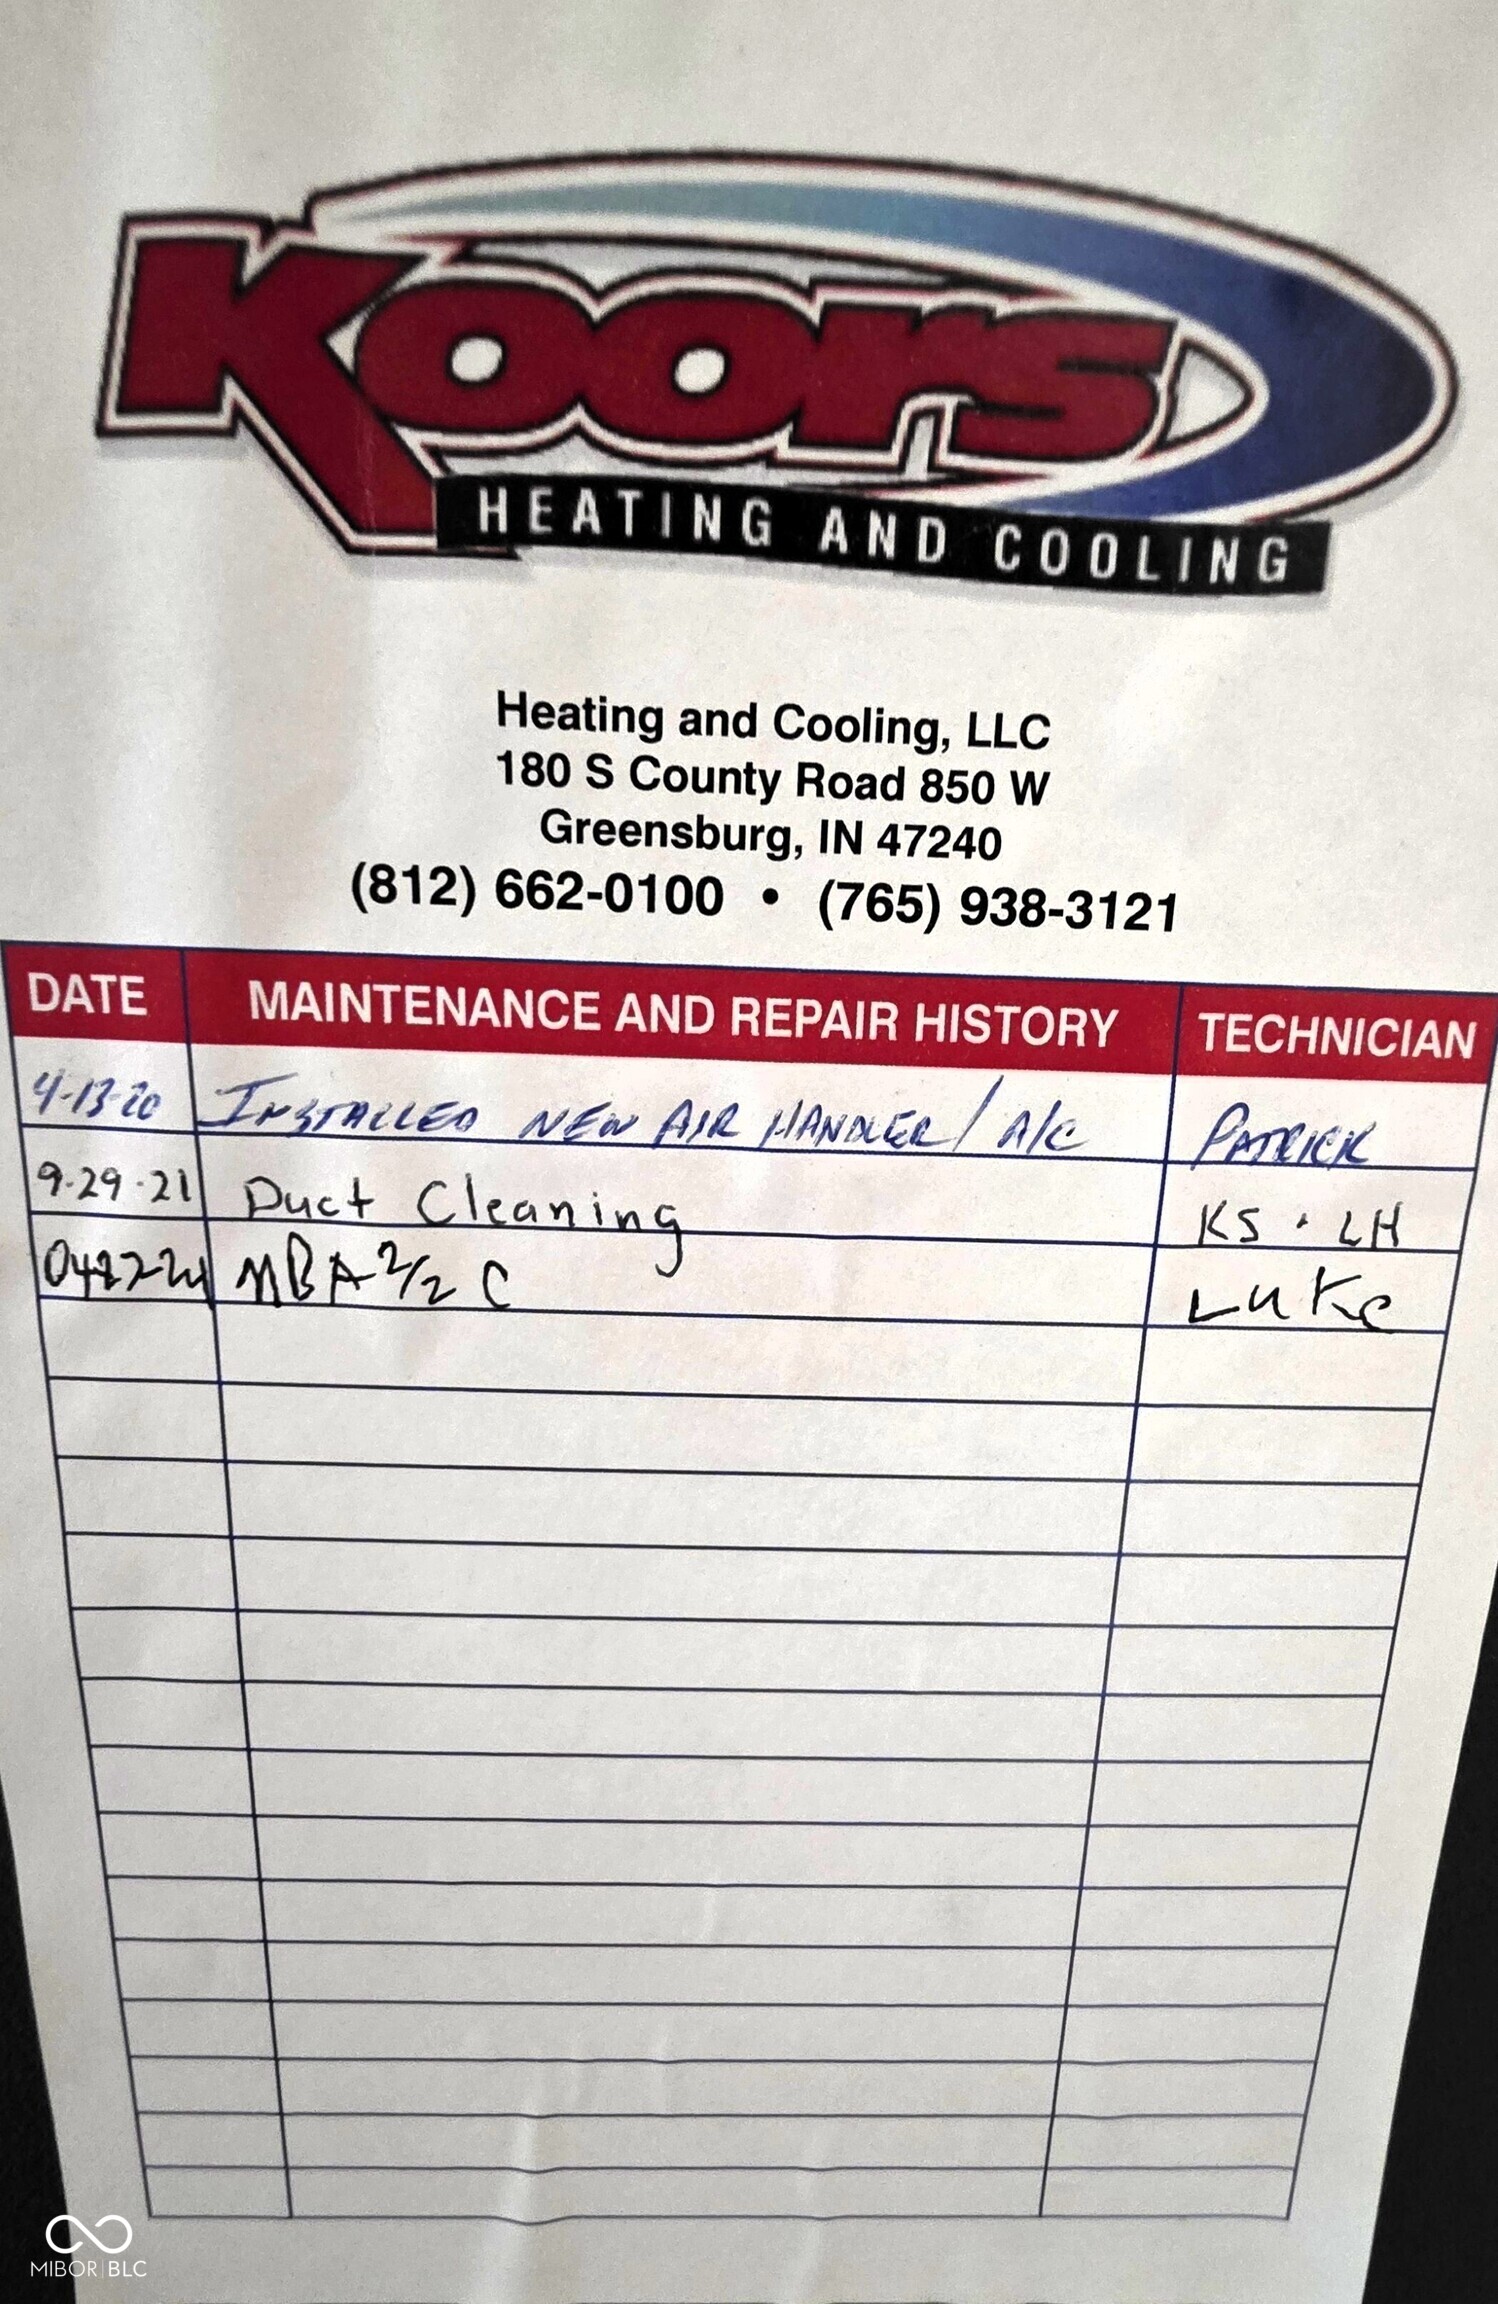 Koors
HEATING AND COOLING
Heating and Cooling, LLC
180 S County Road 850 W
Greensburg, IN 47240
(812) 662-0100 • (765) 938-3121
DATE MAINTENANCE AND REPAIR HISTORY TECHNICIAN
4-13-20 INSTALLED NEW AIR HANDLER / A/C PATRICK
9-29-21 Duct Cleaning KS · LH
MBA 2/2 C LUKe
MIBOR|BLC